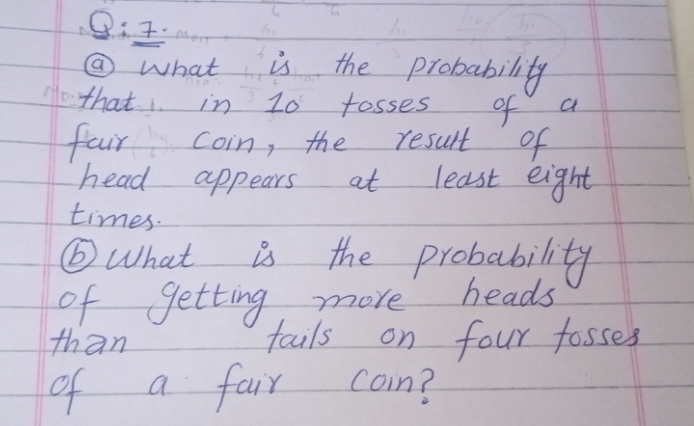 Q:7.
ⓐ what is the probability
that in 10 tosses of a
fair coin, the result of
head appears at least eight
times.
ⓑ What is the probability
of getting more heads
than tails on four tosses
of a fair coin?